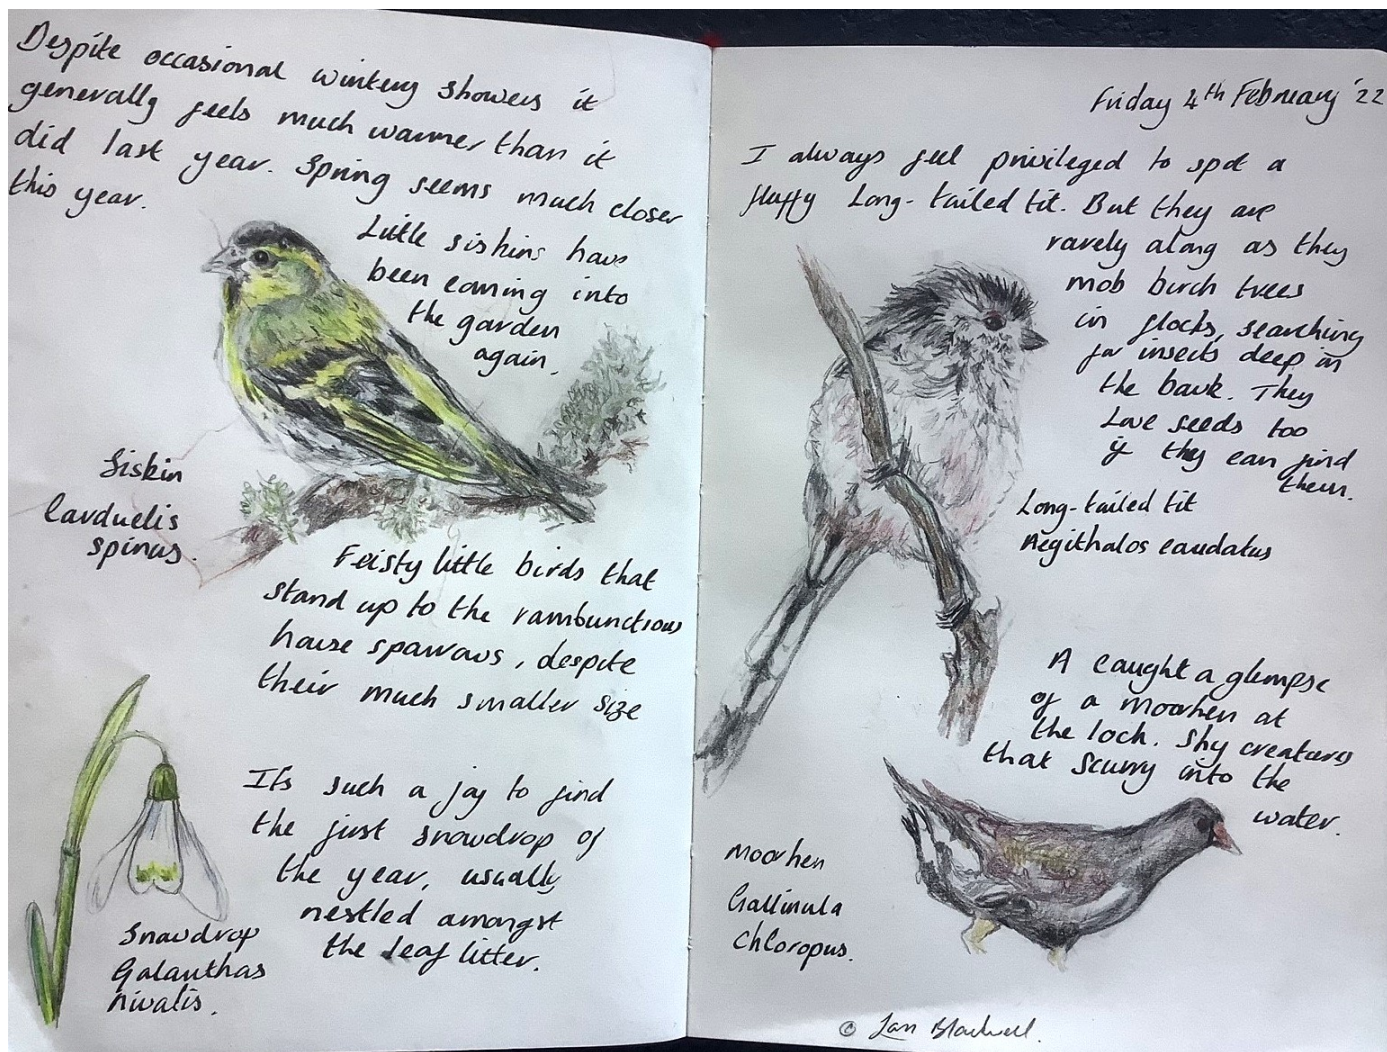 Despite occasional wintery showers it
generally feels much warmer than it
did last year. Spring seems much closer
this year.
Little siskins have
been coming into
the garden
again.
Siskin
Carduelis
spinus.
Feisty little birds that
stand up to the rambunctious
house sparrows, despite
their much smaller size
It's such a joy to find
the first snowdrop of
the year, usually
nestled amongst
the leaf litter.
Snowdrop
Galanthas
nivalis.
Friday 4th February '22
I always feel privileged to spot a
fluffy Long-tailed tit. But they are
rarely along as they
mob birch trees
in flocks, searching
for insects deep in
the bark. They
Love seeds too
if they can find
them.
Long-tailed tit
Aegithalos caudatus
A caught a glimpse
of a moorhen at
the loch. Shy creatures
that scurry into the
water.
Moorhen
Gallinula
Chloropus.
© Blackwell.